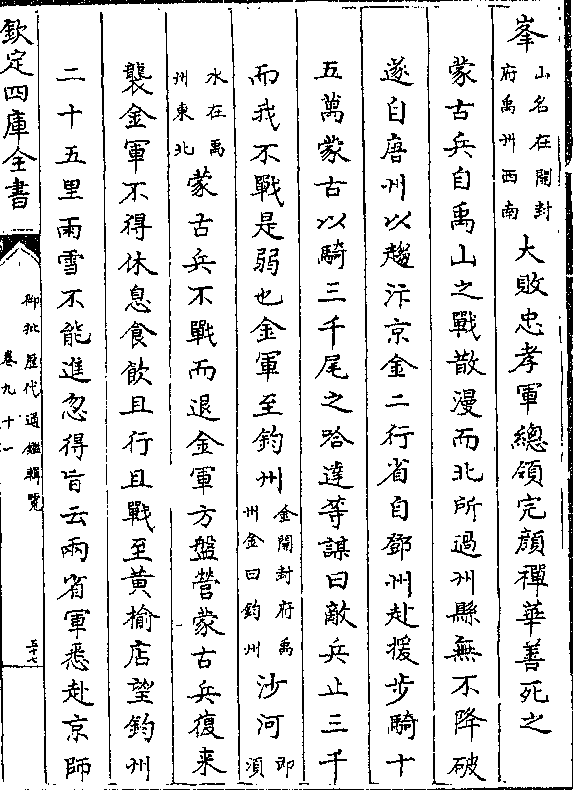 峯山名在開封府禹州西南大敗忠孝軍總領完顏禪華善死之
蒙古兵自禹山之戰散漫而北所過州縣無不降破
遂自唐州以趨汴京金二行省自鄧州赴援步騎十
五萬蒙古以騎三千尾之哈達等謀曰敵兵止三千
而我不戰是弱也金軍至鈞州金開封府禹州金曰鈞州沙河即湏
水在禹州東北蒙古兵不戰而退金軍方盤營蒙古兵復来
襲金軍不得休息食飲且行且戰至黃榆店望鈞州
二十五里雨雪不能進忽得旨云兩省軍悉赴京師
欽定四庫全書
御批歷代通鑑輯覽
卷九十一
五十七